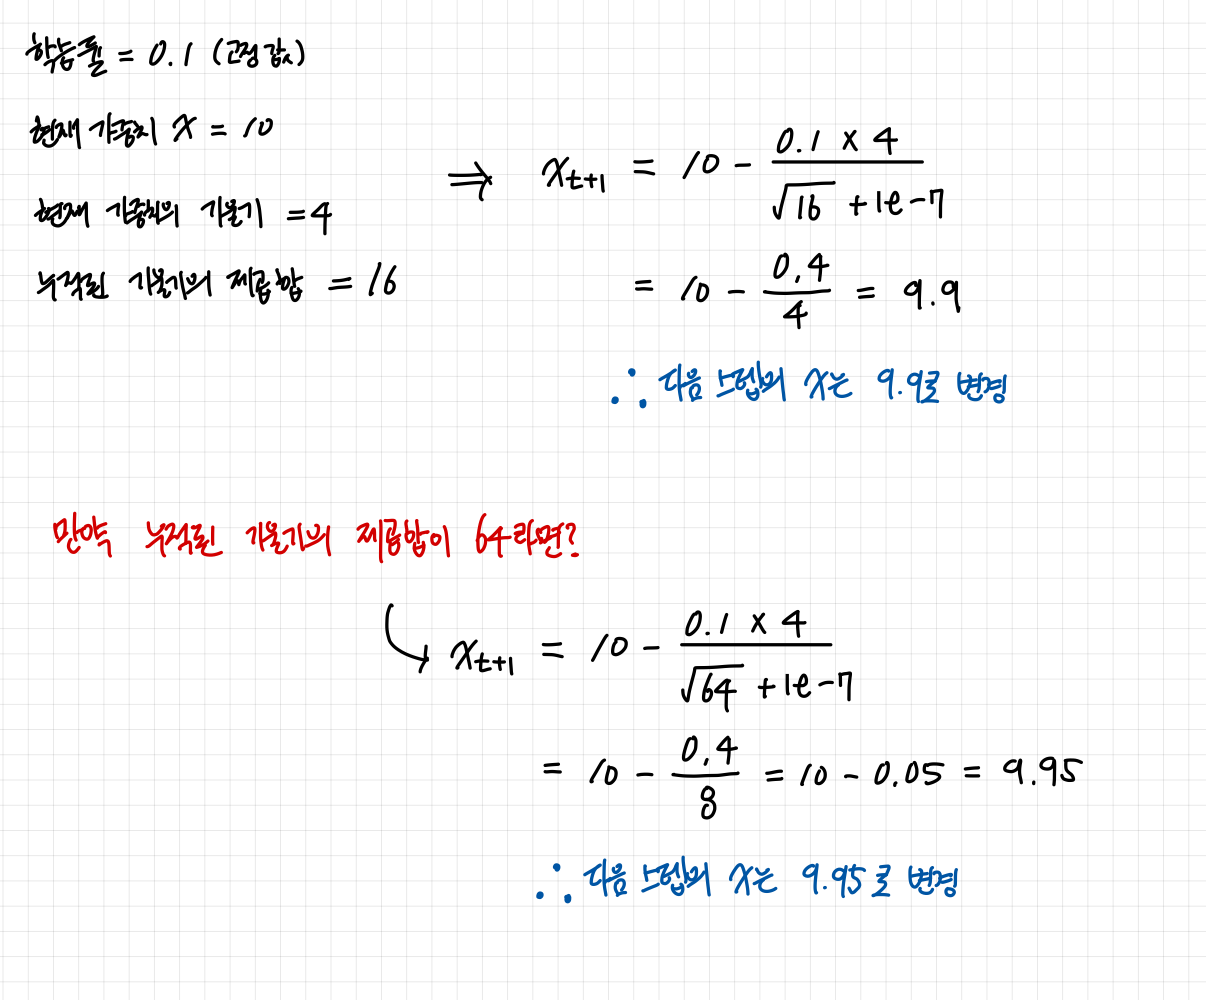 학습률 = 0.1 (고정 값)
현재 가중치 x = 10
현재 가중치의 기울기 = 4
누적된 기울기의 제곱합 = 16
⇒ x_{t+1} = 10 - \frac{0.1 × 4}{\sqrt{16} + 1e-7}
= 10 - \frac{0.4}{4} = 9.9
∴ 다음 스텝의 x는 9.9로 변경
만약 누적된 기울기의 제곱합이 64라면?
↳ x_{t+1} = 10 - \frac{0.1 × 4}{\sqrt{64} + 1e-7}
= 10 - \frac{0.4}{8} = 10 - 0.05 = 9.95
∴ 다음 스텝의 x는 9.95로 변경